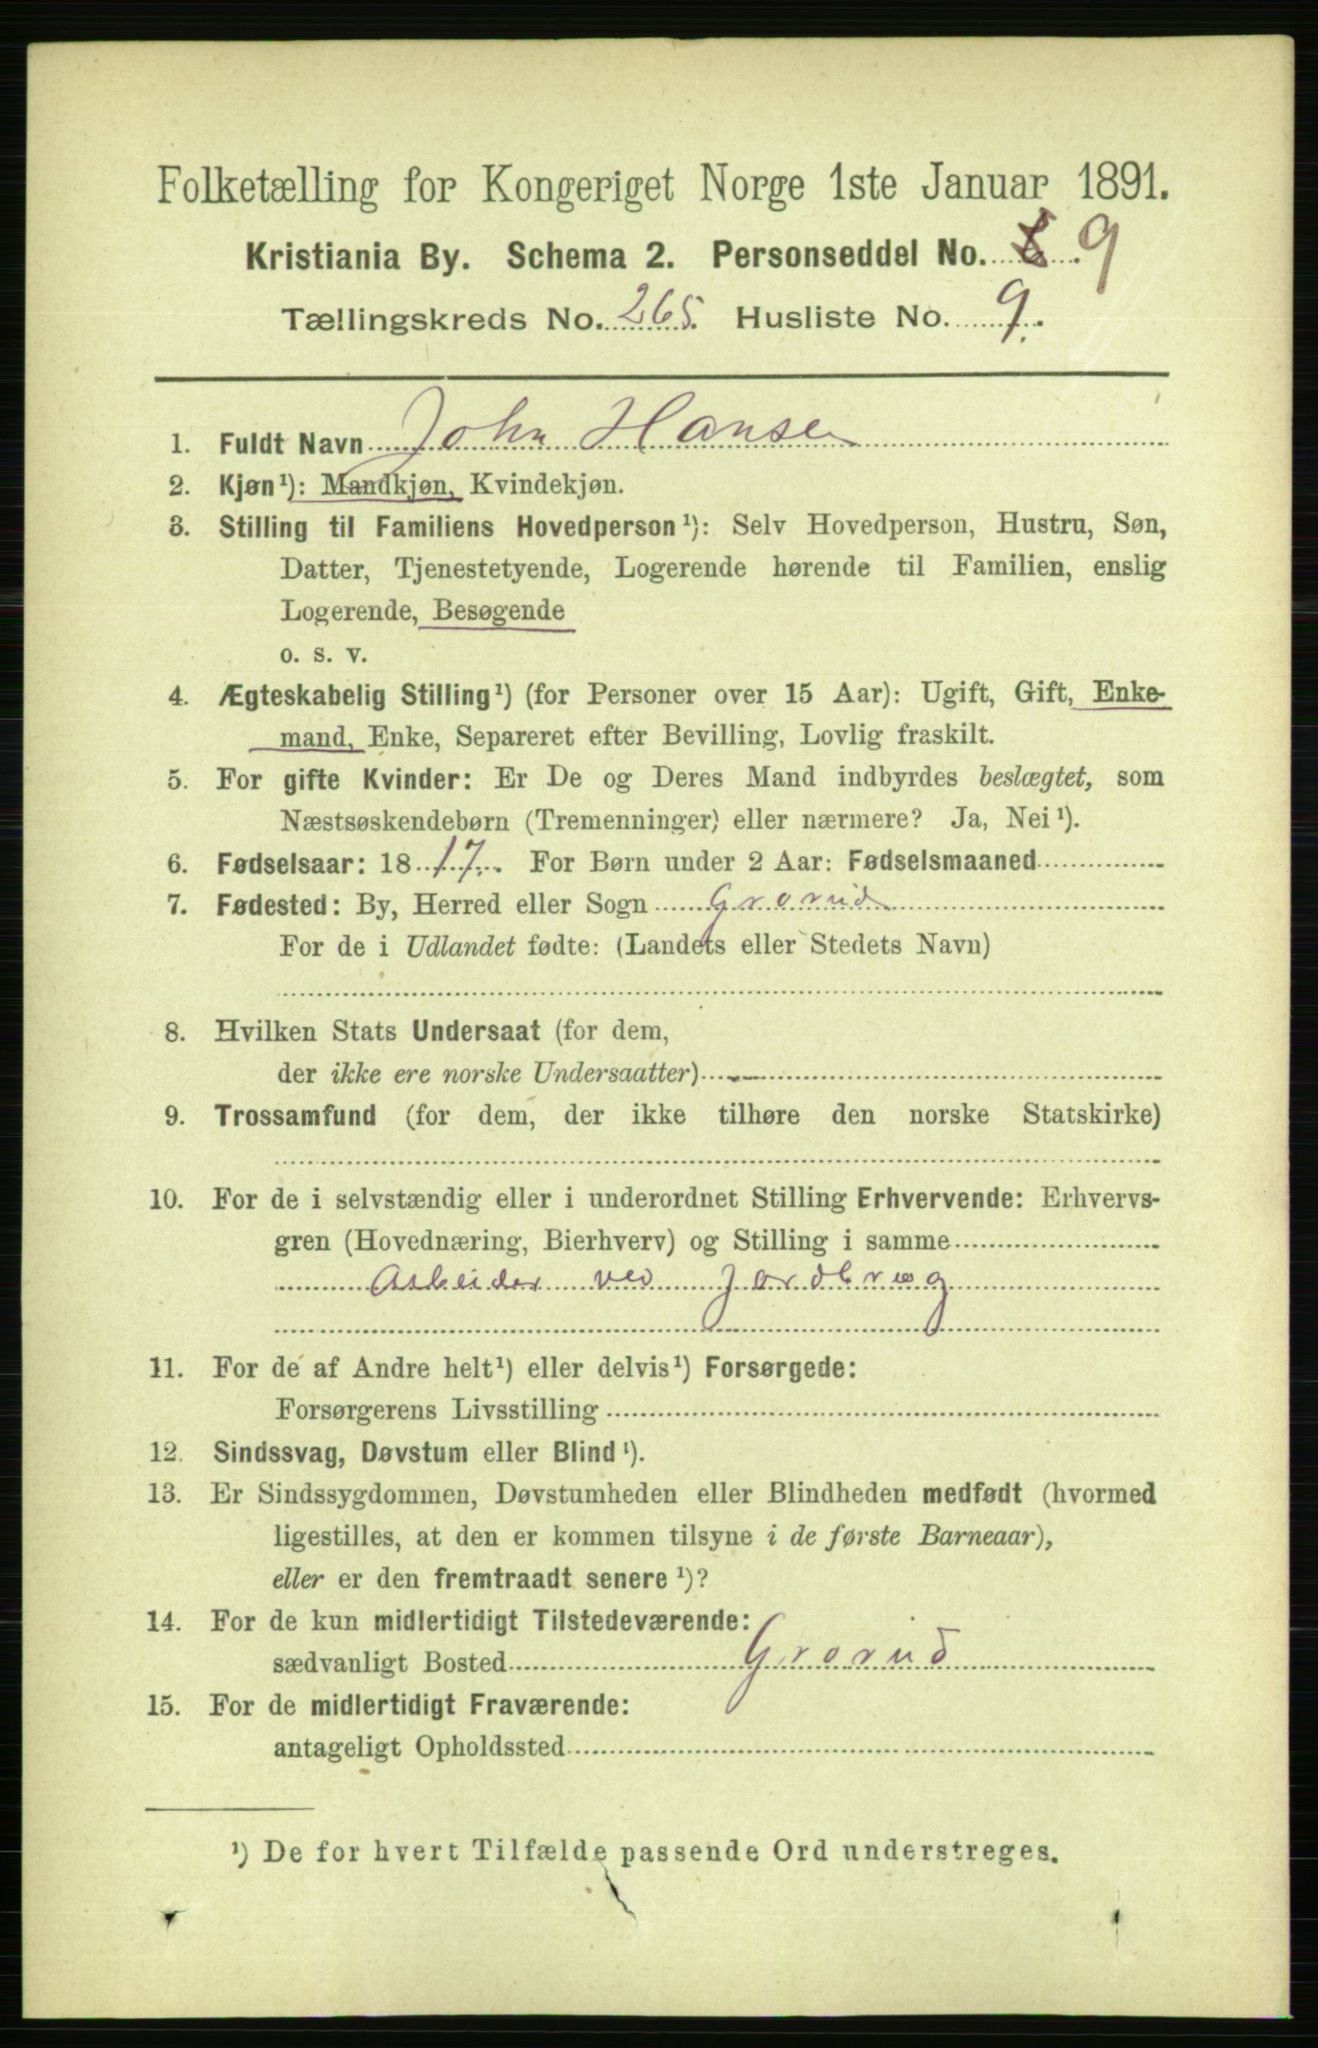 Folketælling for Kongeriget Norge 1ste Januar 1891.
Kristiania By. Schema 2. Personseddel No. 9
Tællingskreds No. 265. Husliste No. 9.
1. Fuldt Navn John Hansen
2. Kjøn¹): Mandkjøn, Kvindekjøn.
3. Stilling til Familiens Hovedperson¹): Selv Hovedperson, Hustru, Søn,
Datter, Tjenestetyende, Logerende hørende til Familien, enslig
Logerende, Besøgende
o. s. v.
4. Ægteskabelig Stilling¹) (for Personer over 15 Aar): Ugift, Gift, Enke-
mand, Enke, Separeret efter Bevilling, Lovlig fraskilt.
5. For gifte Kvinder: Er De og Deres Mand indbyrdes beslægtet, som
Næstsøskendebørn (Tremenninger) eller nærmere? Ja, Nei¹).
6. Fødselsaar: 1817. For Børn under 2 Aar: Fødselsmaaned
7. Fødested: By, Herred eller Sogn Grorud
For de i Udlandet fødte: (Landets eller Stedets Navn)
8. Hvilken Stats Undersaat (for dem,
der ikke ere norske Undersaatter)
9. Trossamfund (for dem, der ikke tilhøre den norske Statskirke)
10. For de i selvstændig eller i underordnet Stilling Erhvervende: Erhvervs-
gren (Hovednæring, Bierhverv) og Stilling i samme
Arbeider ved Jordbrug
11. For de af Andre helt¹) eller delvis¹) Forsørgede:
Forsørgerens Livsstilling
12. Sindssvag, Døvstum eller Blind¹).
13. Er Sindssygdommen, Døvstumheden eller Blindheden medfødt (hvormed
ligestilles, at den er kommen tilsyne i de første Barneaar),
eller er den fremtraadt senere¹)?
14. For de kun midlertidigt Tilstedeværende:
sædvanligt Bosted Grorud
15. For de midlertidigt Fraværende:
antageligt Opholdssted
¹) De for hvert Tilfælde passende Ord understreges.